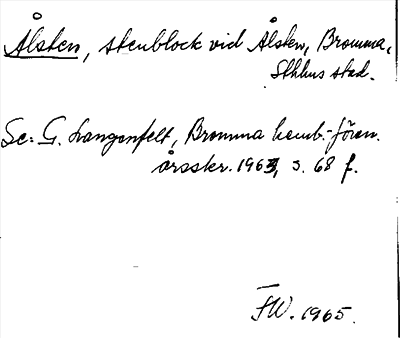 Ålsten, stenblock vid Ålsten, Bromma,
Sthlms stad.
Se: G. Langenfelt, Bromma hemb.-fören.
årsskr. 1963, s. 68 f.
FW. 1965.